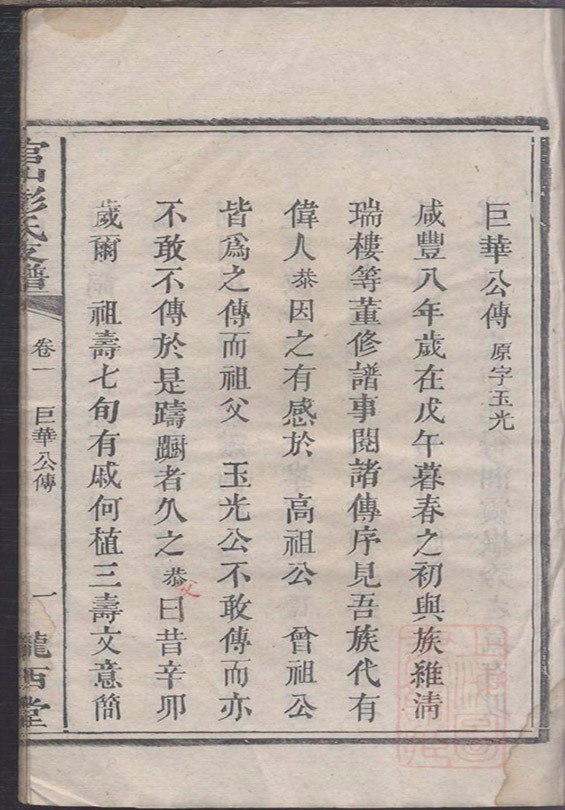 巨華公傳 原字玉光
咸豐八年歲在戊午暮春之初與族維清
瑞樓等董修譜事閱諸傳序見吾族代有
偉人恭因之有感於 高祖公 曾祖公
皆爲之傳而祖父 玉光公不敢傳而亦
不敢不傳於是躊躕者久之恭父曰昔辛卯
歲爾 祖壽七旬有戚何植三壽文意簡
官山彭氏支譜 卷一 巨華公傳 一 隴西堂